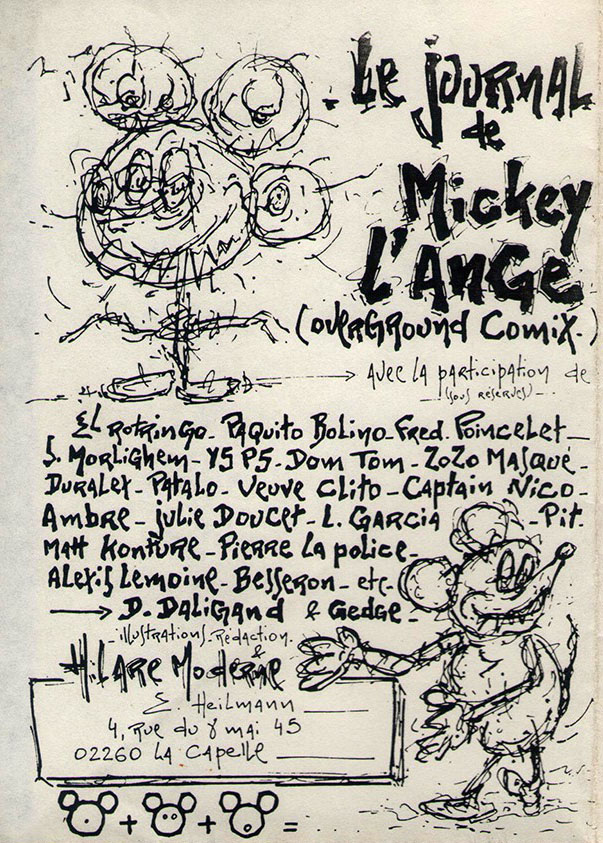 Le journal
de
Mickey
L'Ange
(overground Comix.)
avec la participation de
(sous réserves)
El Rotringo_Paquito Bolino_Fred. Poincelet_
S. Morlighem_Y5 P5_Dom Tom_Zozo Masque_
Duralex_Patalo_Veuve Clito_Captain Nico_
Ambre_julie Doucet_L. Garcia_Pit.
Matt Konture_Pierre La police_
Alexis Lemoine_Besseron_etc_
D. Daligand & Gedge_
illustrations_Rédaction.
&
Hilare Moderne
E. Heilmann
4, Rue du 8 mai 45
02260 La Capelle
+ + =